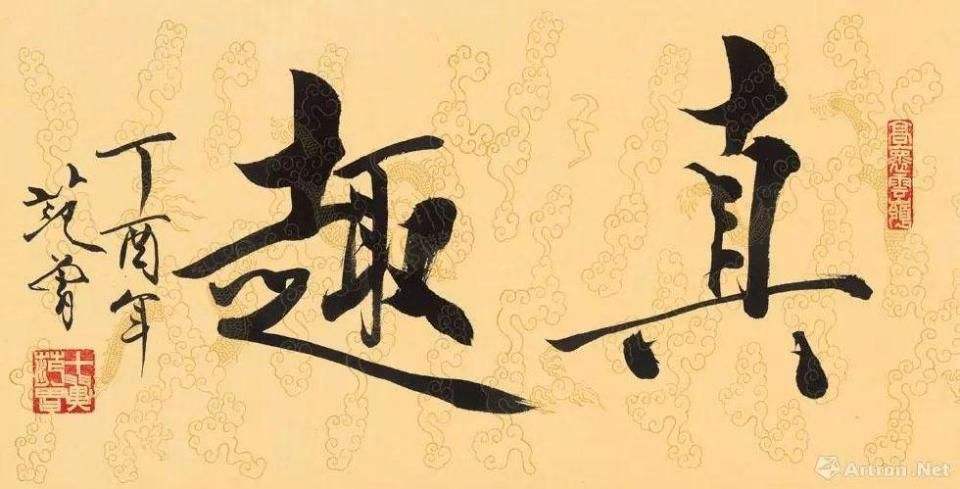 真趣
丁酉年
范曾
十翼
范曾
Artron.Net